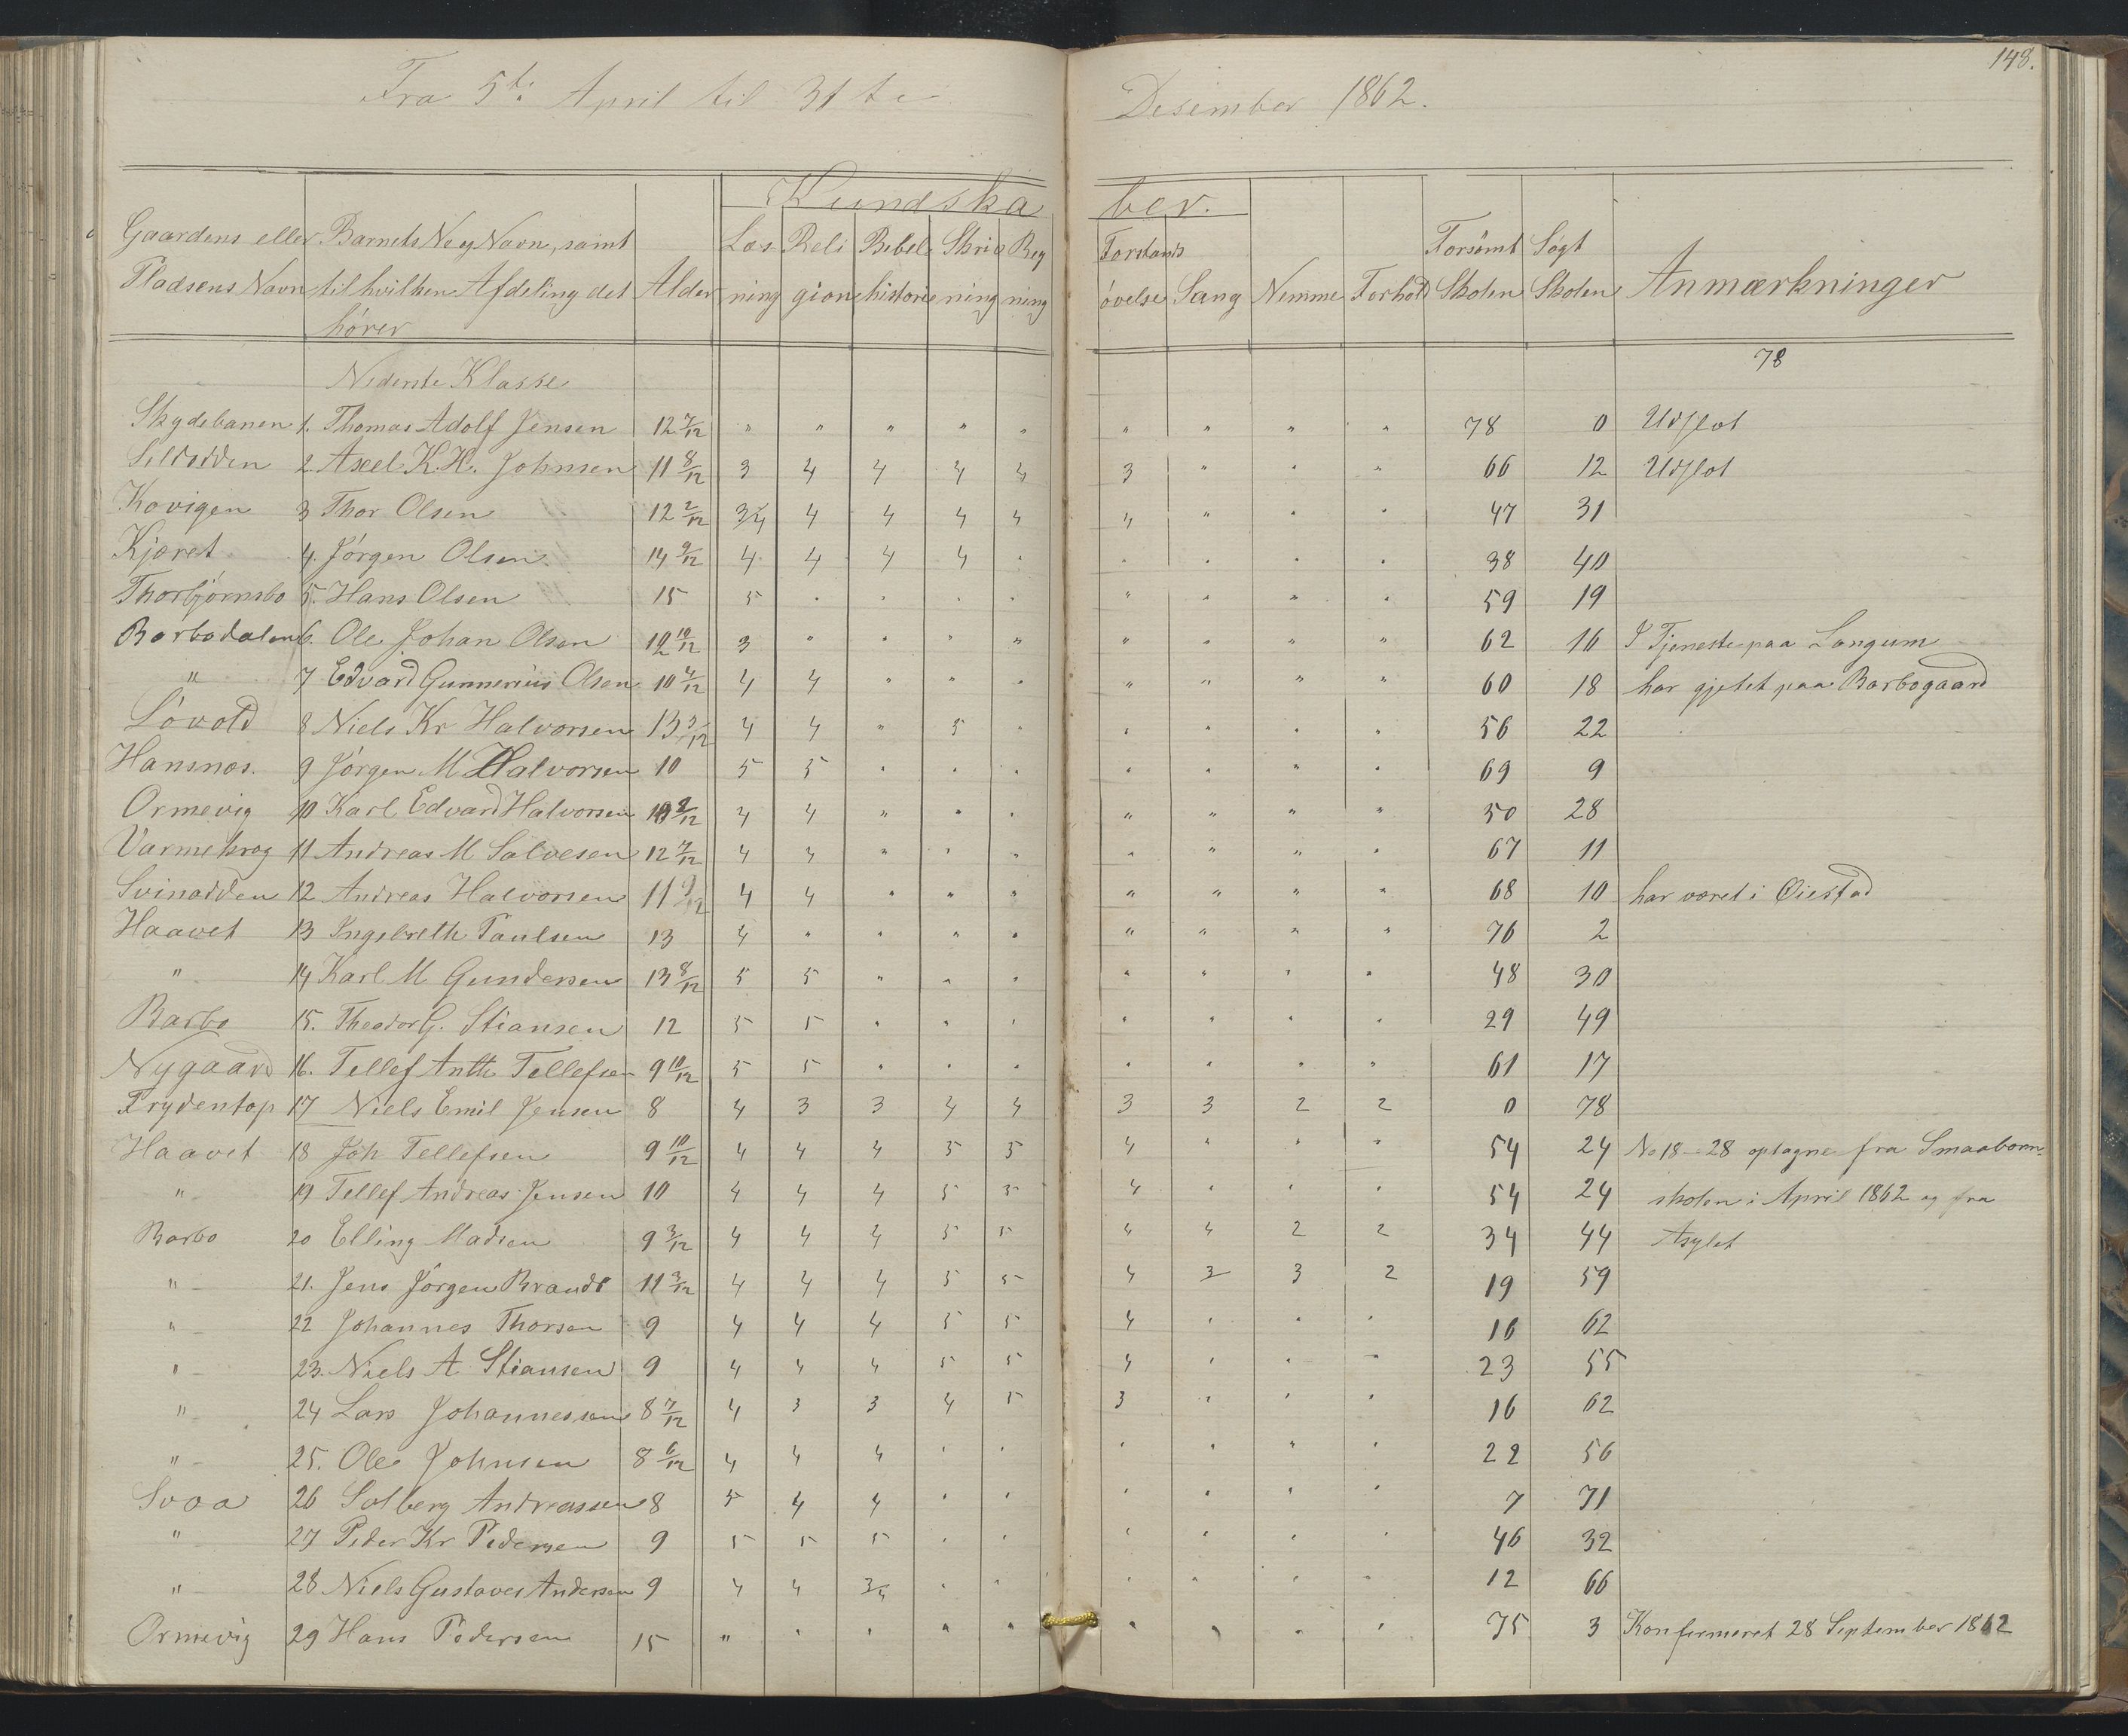 148.
Fra 5te April til 31te Desember 1862.
Kundskaber.
Gaardens eller Pladsens Navn | Barnets No og Navn, samt til hvilken Afdeling det hører | Alder | Læsning | Religion | Bibelhistorie | Skrivning | Regning | Forstandsøvelse | Sang | Nemme | Forhold | Forsömt Skolen | Søgt Skolen | Anmærkninger
Nederste Klasse 78
Skydebanen 1. Thomas Adolf Jensen 12 7/12 " " " " " " " " " 78 0 Udflot
Sildodden 2 Axel K. K. Johnsen 11 8/12 3 4 4 4 4 3 " " " 66 12 Udflot
Kovigen 3 Thor Olsen 12 2/12 3/4 4 4 4 4 4 " " " 47 31
Kjæret 4. Jörgen Olsen 14 9/12 4 4 4 4 " " " " " 38 40
Thorbjörnsbo 5. Hans Olsen 15 5 " " " " " " " " 59 19
Barbodalen 6. Ole Johan Olsen 12 10/12 3 " " " " " " " " 62 16 I Tjeneste paa Langum
" 7 Edvard Gunnerius Olsen 10 4/12 4 4 " " " " " " " 60 18 har gjetet paa Barbogaard
Lóvold 8 Niels Kr Halvorsen 13 3/12 4 4 " 5 " " " " " 56 22
Hansnæs. 9 Jörgen M Halvorsen 10 5 5 " " " " " " " 69 9
Ormevig 10 Karl Edvard Halvorsen 2/12 4 4 " " " " " " " 50 28
Varmekrog 11 Andreas M Salvesen 12 7/12 4 4 " " " " " " " 67 11
Svinodden 12 Andreas Halvorsen 11 9/12 4 4 " " " " " " " 68 10 har været i Øiestad
Haavet 13 Ingebreth Paulsen 13 4 " " " " " " " " 76 2
" 14 Karl M Gundersen 13 8/12 5 5 " " " " " " " 48 30
Barbo 15. Theodor G. Stiansen 12 5 5 " " " " " " " 29 49
Nygaard 16. Tellef Anth Tellefsen 9 10/12 5 5 " " " " " " " 61 17
Frydentop 17 Niels Emil Jensen 8 4 3 3 4 4 3 3 2 2 0 78
Haavet 18 Joh Tellefsen 9 10/12 4 4 4 5 5 4 " " " 54 24 No 18-28 optagne fra Smaabørn-
" 19 Tellef Andreas Jensen 10 4 4 4 5 5 4 " " " 54 24 skolen i April 1862 og fra
Barbo 20 Elling Madsen 9 3/12 4 4 4 5 5 4 4 2 2 34 44 Asylet
" 21. Jens Jörgen Brandt 11 3/12 4 4 4 5 5 4 3 3 2 19 59
" 22 Johannes Thorsen 9 4 4 4 5 5 4 " " " 16 62
" 23. Niels A Stiansen 9 4 4 4 5 5 4 " " " 23 55
" 24 Lars Johannessen 8 7/12 4 3 3 4 5 3 " " " 16 62
" 25. Ole Johnsen 8 6/12 4 4 4 " " " " " " 22 56
Svoa 26 Solberg Andreassen 8 5 4 4 " " " " " " 7 71
" 27 Peder Kr Pedersen 9 5 5 5 " " " " " " 46 32
" 28 Niels Gustaves Andersen 9 4 4 3/4 " " " " " " 12 66
Ormevig 29 Hans Pedersen 15 " " " " " " " " " 75 3 Konfirmeret 28 September 1862